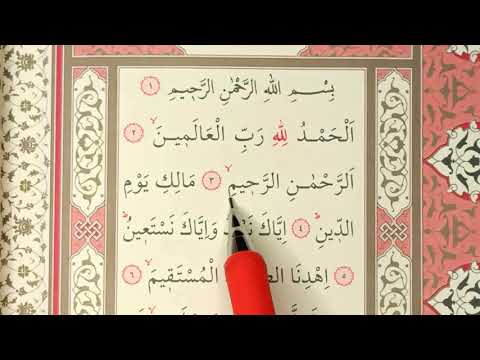 بِسْمِ اللهِ الرَّحْمٰنِ الرَّحِيمِ ١
اَلْحَمْدُ لِلّٰهِ رَبِّ الْعَالَمِينَ ٢
اَلرَّحْمٰنِ الرَّحِيمِ ٣ مَالِكِ يَوْمِ
الدِّينِ ٤ اِيَّاكَ وَاِيَّاكَ نَسْتَعِينُ
٥ اِهْدِنَا الْمُسْتَقِيمَ ٦